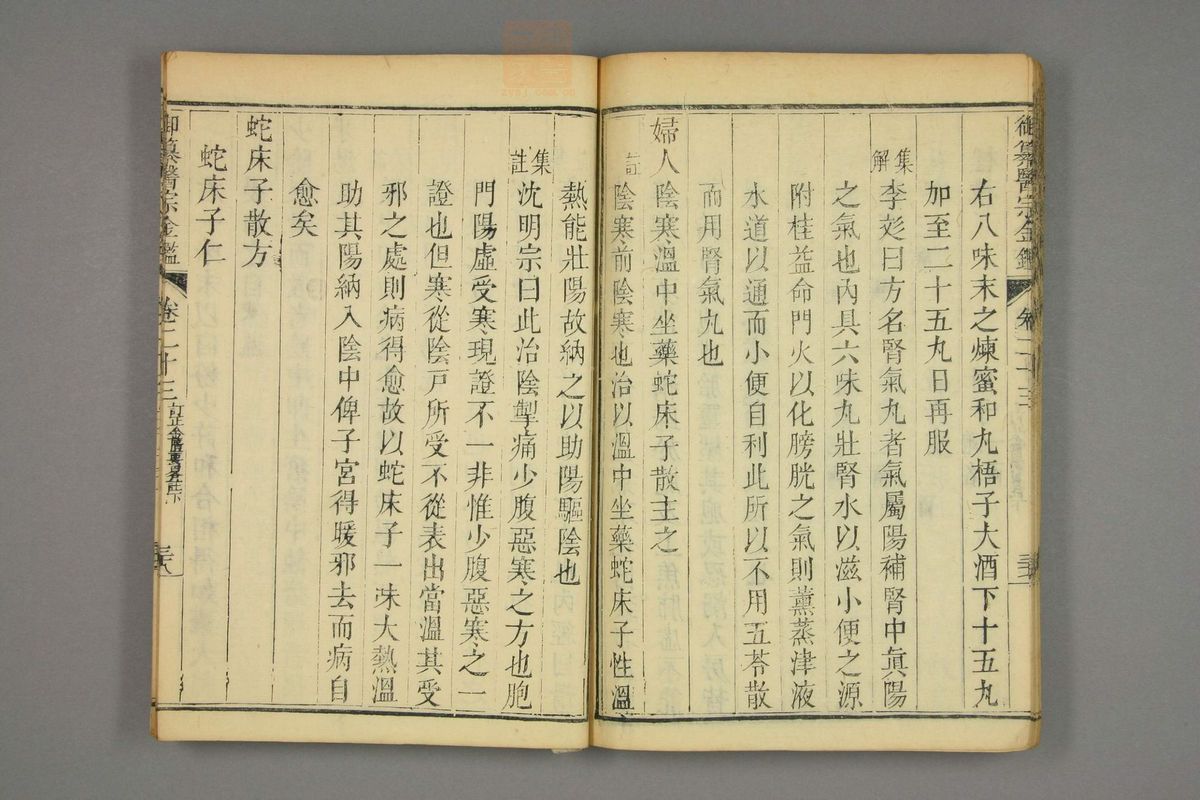 御纂醫宗金鑑 卷二十三
右八味末之煉蜜和丸梧子大酒下十五丸
加至二十五丸日再服
集解 李彣曰方名腎氣丸者氣屬陽補腎中眞陽
之氣也內具六味丸壯腎水以滋小便之源
附桂益命門火以化膀胱之氣則薰蒸津液
水道以通而小便自利此所以不用五苓散
而用腎氣丸也
婦人陰寒溫中坐藥蛇床子散主之
註 陰寒前陰寒也治以溫中坐藥蛇床子性溫
熱能壯陽故納之以助陽驅陰也
集註 沈明宗曰此治陰掣痛少腹惡寒之方也胞
門陽虛受寒現證不一非惟少腹惡寒之一
證也但寒從陰戶所受不從表出當溫其受
邪之處則病得愈故以蛇床子一味大熱溫
助其陽納入陰中俾子宮得暖邪去而病自
愈矣
蛇床子散方
蛇床子仁
御纂醫宗金鑑 卷二十三